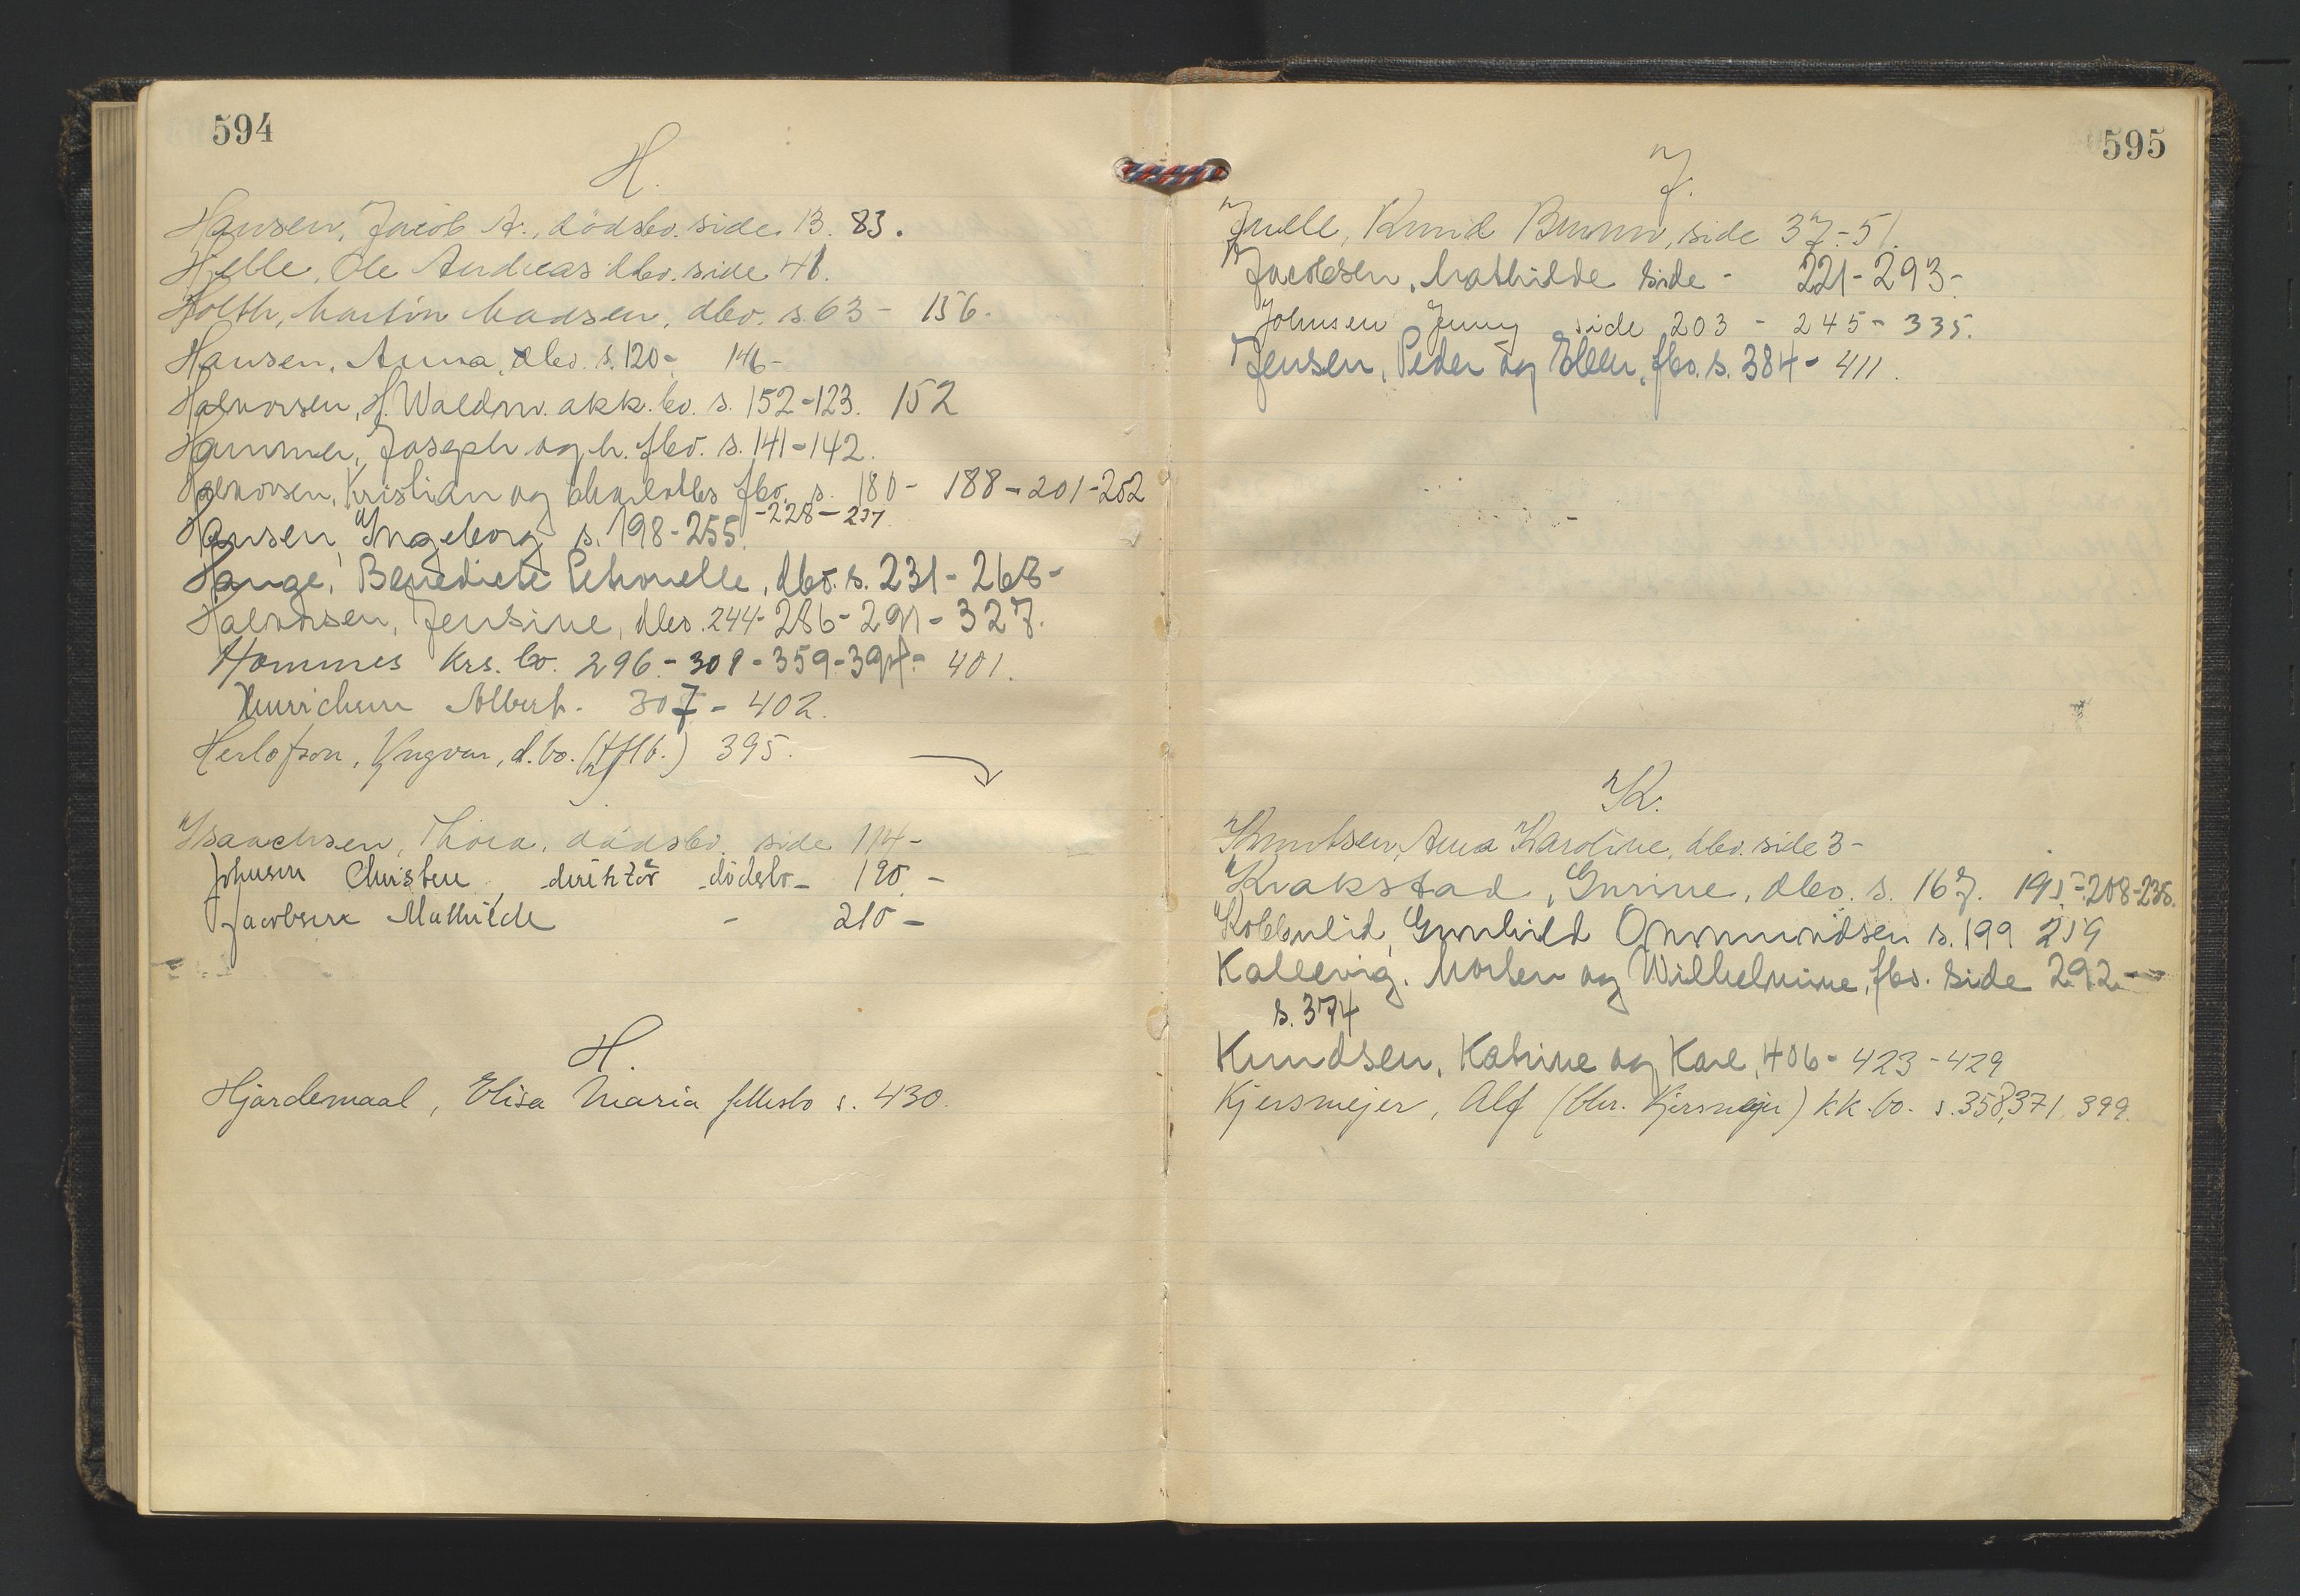 594
H.
Hansen, Jacob A., dödsbo. side 13. 83.
Hjelle, Ole Andreas dbo. side 41.
Holth, Martin Madsen, dbo. s. 63 - 156.
Hansen, Anna, dbo. s. 120 - 146 -
Halvorsen, H. Waldm. akk. bo. s. 152-123. 152
Hammer, Joseph og h. fbo. s. 141-142.
Halvorsen, Kristian og fbo. s. 180 - 188 - 201 - 202
- 228 - 237.
Hansen, Ingeborg s. 198-255.
Hauge, Benedicte Petronelle, dbo. s. 231 - 268 -
Halvorsen, Jensine, dbo. 244 - 286 - 291 - 327.
Hommes Krs. bo. 296 - 309 - 359 - 394 - 401.
Hinrichsen Albert. 307 - 402.
Herlofson, Yngvar, d.bo. 395.
Isaachsen, Thora, dødsbo. side 114 -
Johnsen Christen, direktør dödsbo - 190 -
Jacobsen Mathilde - 210 -
H.
Hjardemaal, Elisa Maria fellesbo s. 430.
595
J.
Juell, Knud Bruun, side 37-51.
Jacobsen, Mathilde side - 221 - 293 -
Johnsen Jenny side 203 - 245 - 335.
Jensen, Peder og Ellen, fbo. s. 384 - 411.
K.
Knutsen, Anna Karoline, dbo. side 3 -
Krakstad, Gurine, dbo. s. 167. 195 - 208 - 236.
Gunhild Ommundsen s. 199 219
Kallevig, Morten og Wilhelmine, fbo. side 292 -
s. 374
Knudsen, Katrine og Karl, 406 - 423 - 429
Kjersmejer, Alf (Chr. Kjersmejer) kk. bo. s. 358, 371, 399.